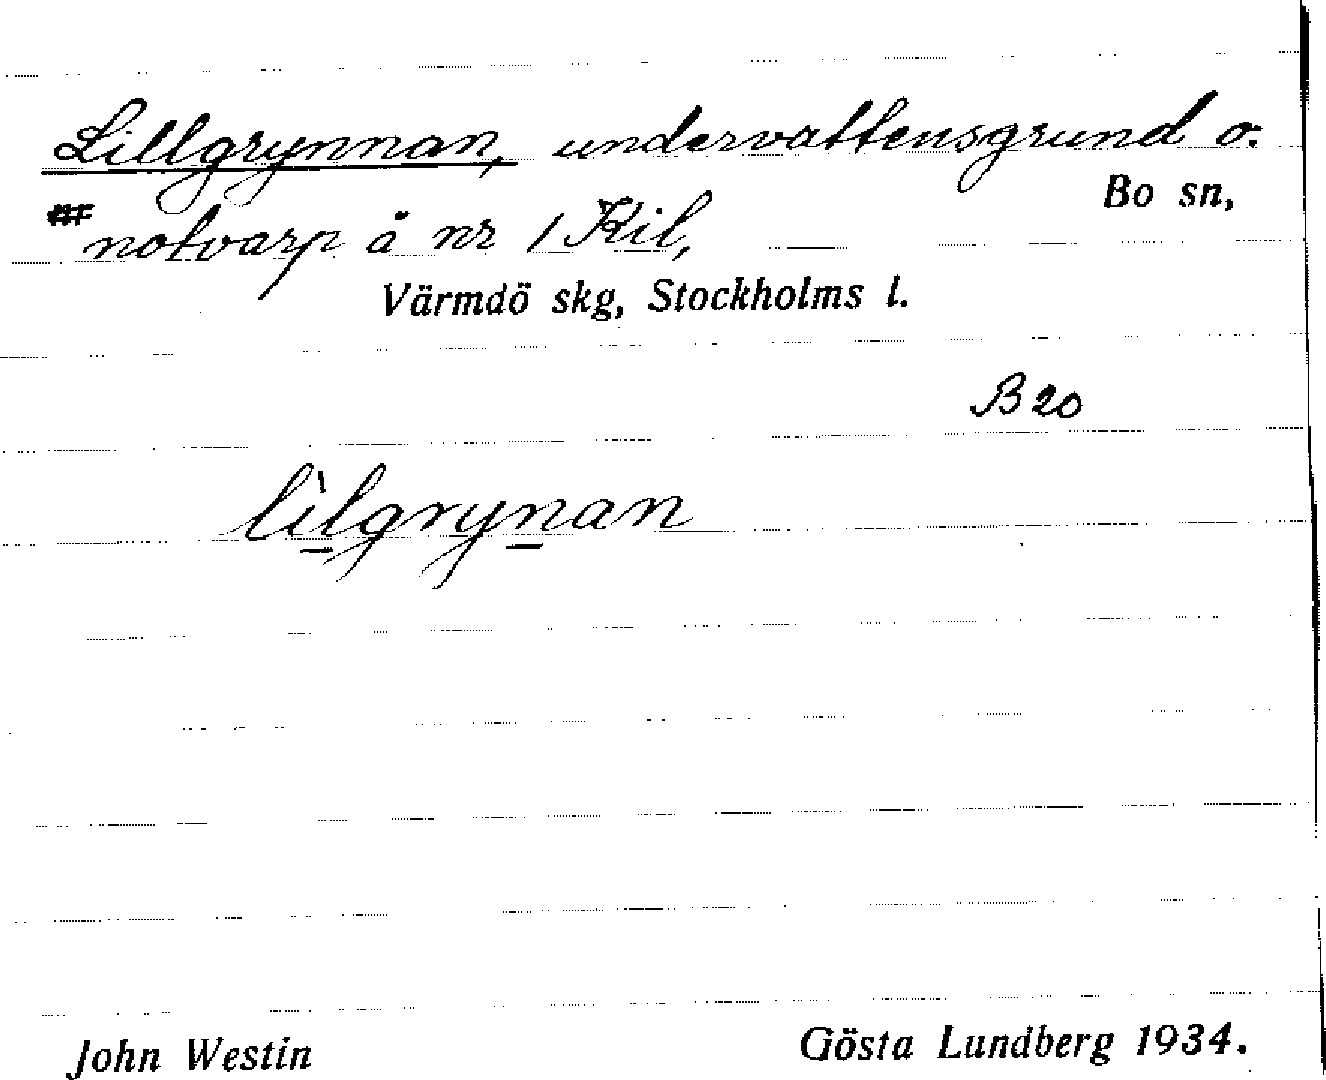 Lillgrynnan, undervattensgrund o.
Bo sn,
notvarp å nr 1 Kil,
Värmdö skg, Stockholms l.
B 20
lìlgrynan
John Westin
Gösta Lundberg 1934.